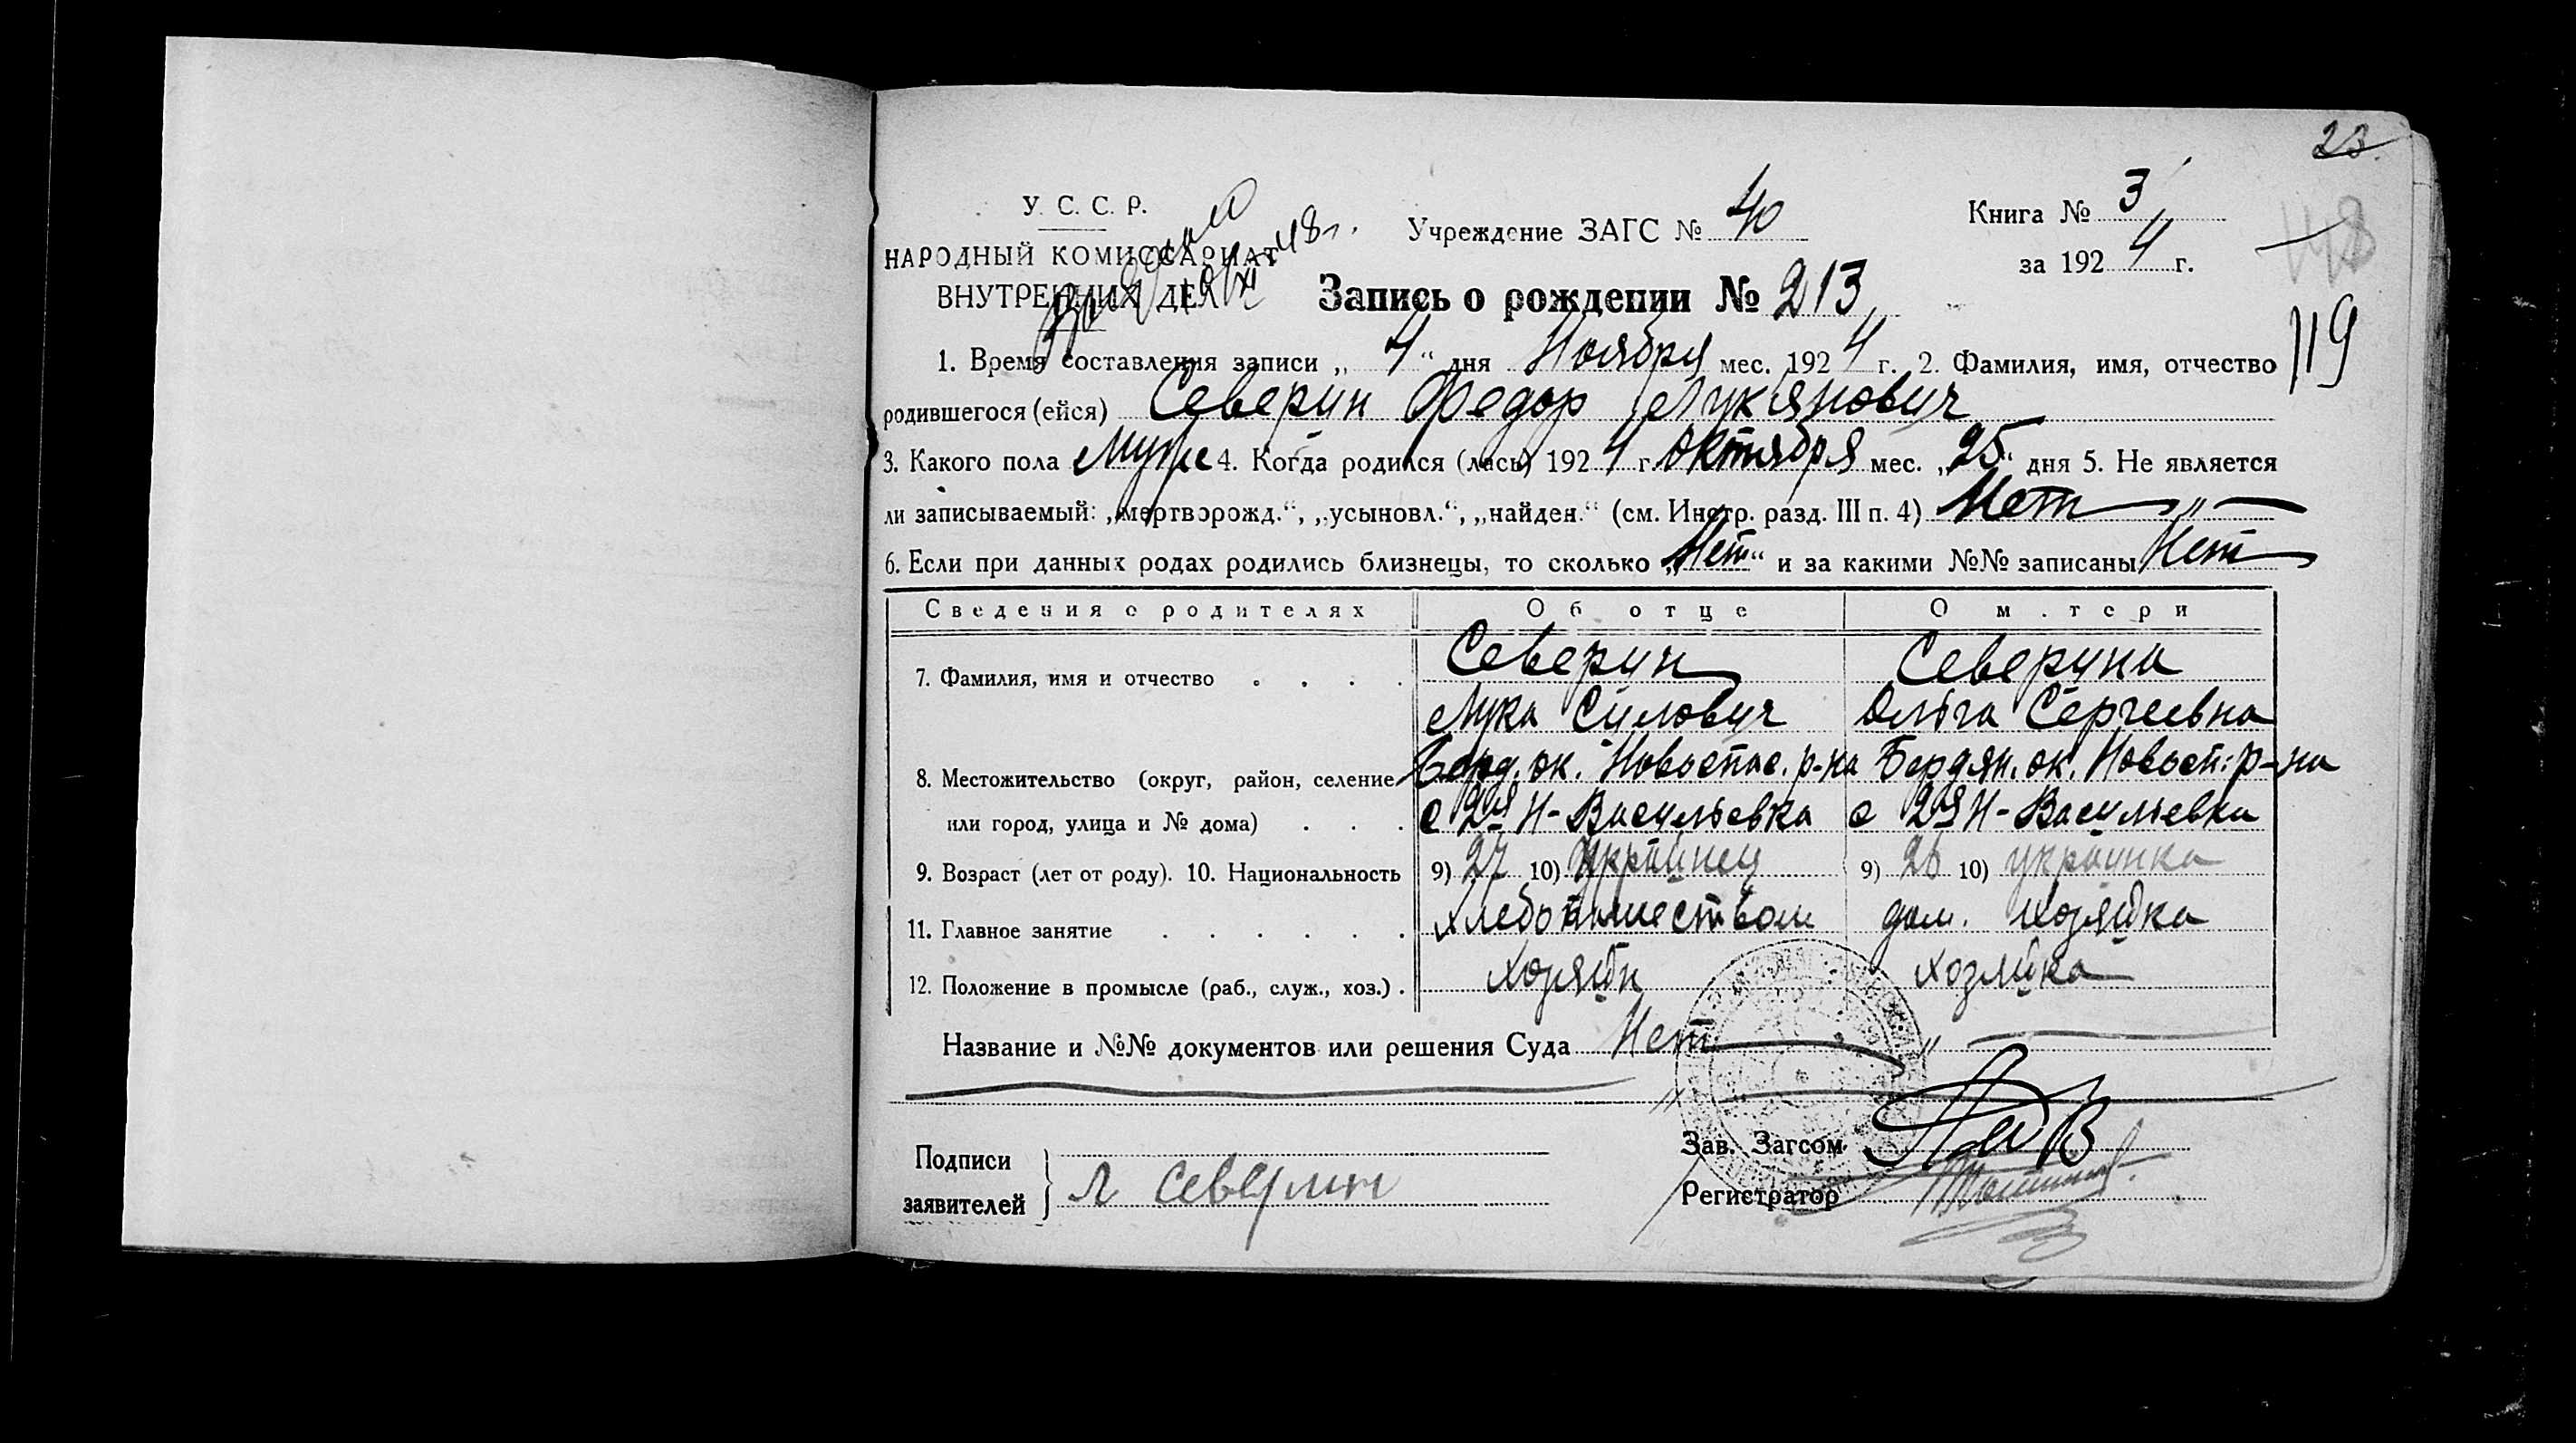 23.
У. С. С. Р.
НАРОДНЫЙ КОМИССАРИАТ
ВНУТРЕННИХ ДЕЛ
48 г.
Учреждение ЗАГС № 40
Книга № 3
за 1924 г.
118
119
Запись о рождении № 213
1. Время составления записи „ 4 “ дня Ноября мес. 1924 г. 2. Фамилия, имя, отчество
родившегося (ейся) Северин Федор Лукянович
3. Какого пола Муж 4. Когда родился (лась) 1924 г. Октября мес. „25“ дня 5. Не является
ли записываемый: „мертворожд.“, „усыновл.“, „найден.“ (см. Инстр. разд. III п. 4) Нет — „ —
6. Если при данных родах родились близнецы, то сколько „Нет“ и за какими №№ записаны Нет
Сведения о родителях Об отце О м.тери
7. Фамилия, имя и отчество . . . . Северин Северина
Лука Силович Ольга Сергеевна
8. Местожительство (округ, район, селение Берд. ок. Новоспас. р-на Бердян. ок. Новосп. р-на
или город, улица и № дома) . . . с 2я Н-Васильевка с 2я Н-Васильевка
9. Возраст (лет от роду). 10. Национальность 9) 27 10) Украинец 9) 26 10) украинка
11. Главное занятие . . . . . . Хлебопашеством дом. хозяйка
12. Положение в промысле (раб., служ., хоз.) . хозяин хозяйка
Название и №№ документов или решения Суда Нет „
Подписи
заявителей
Л Северин
Зав. Загсом
Регистратор